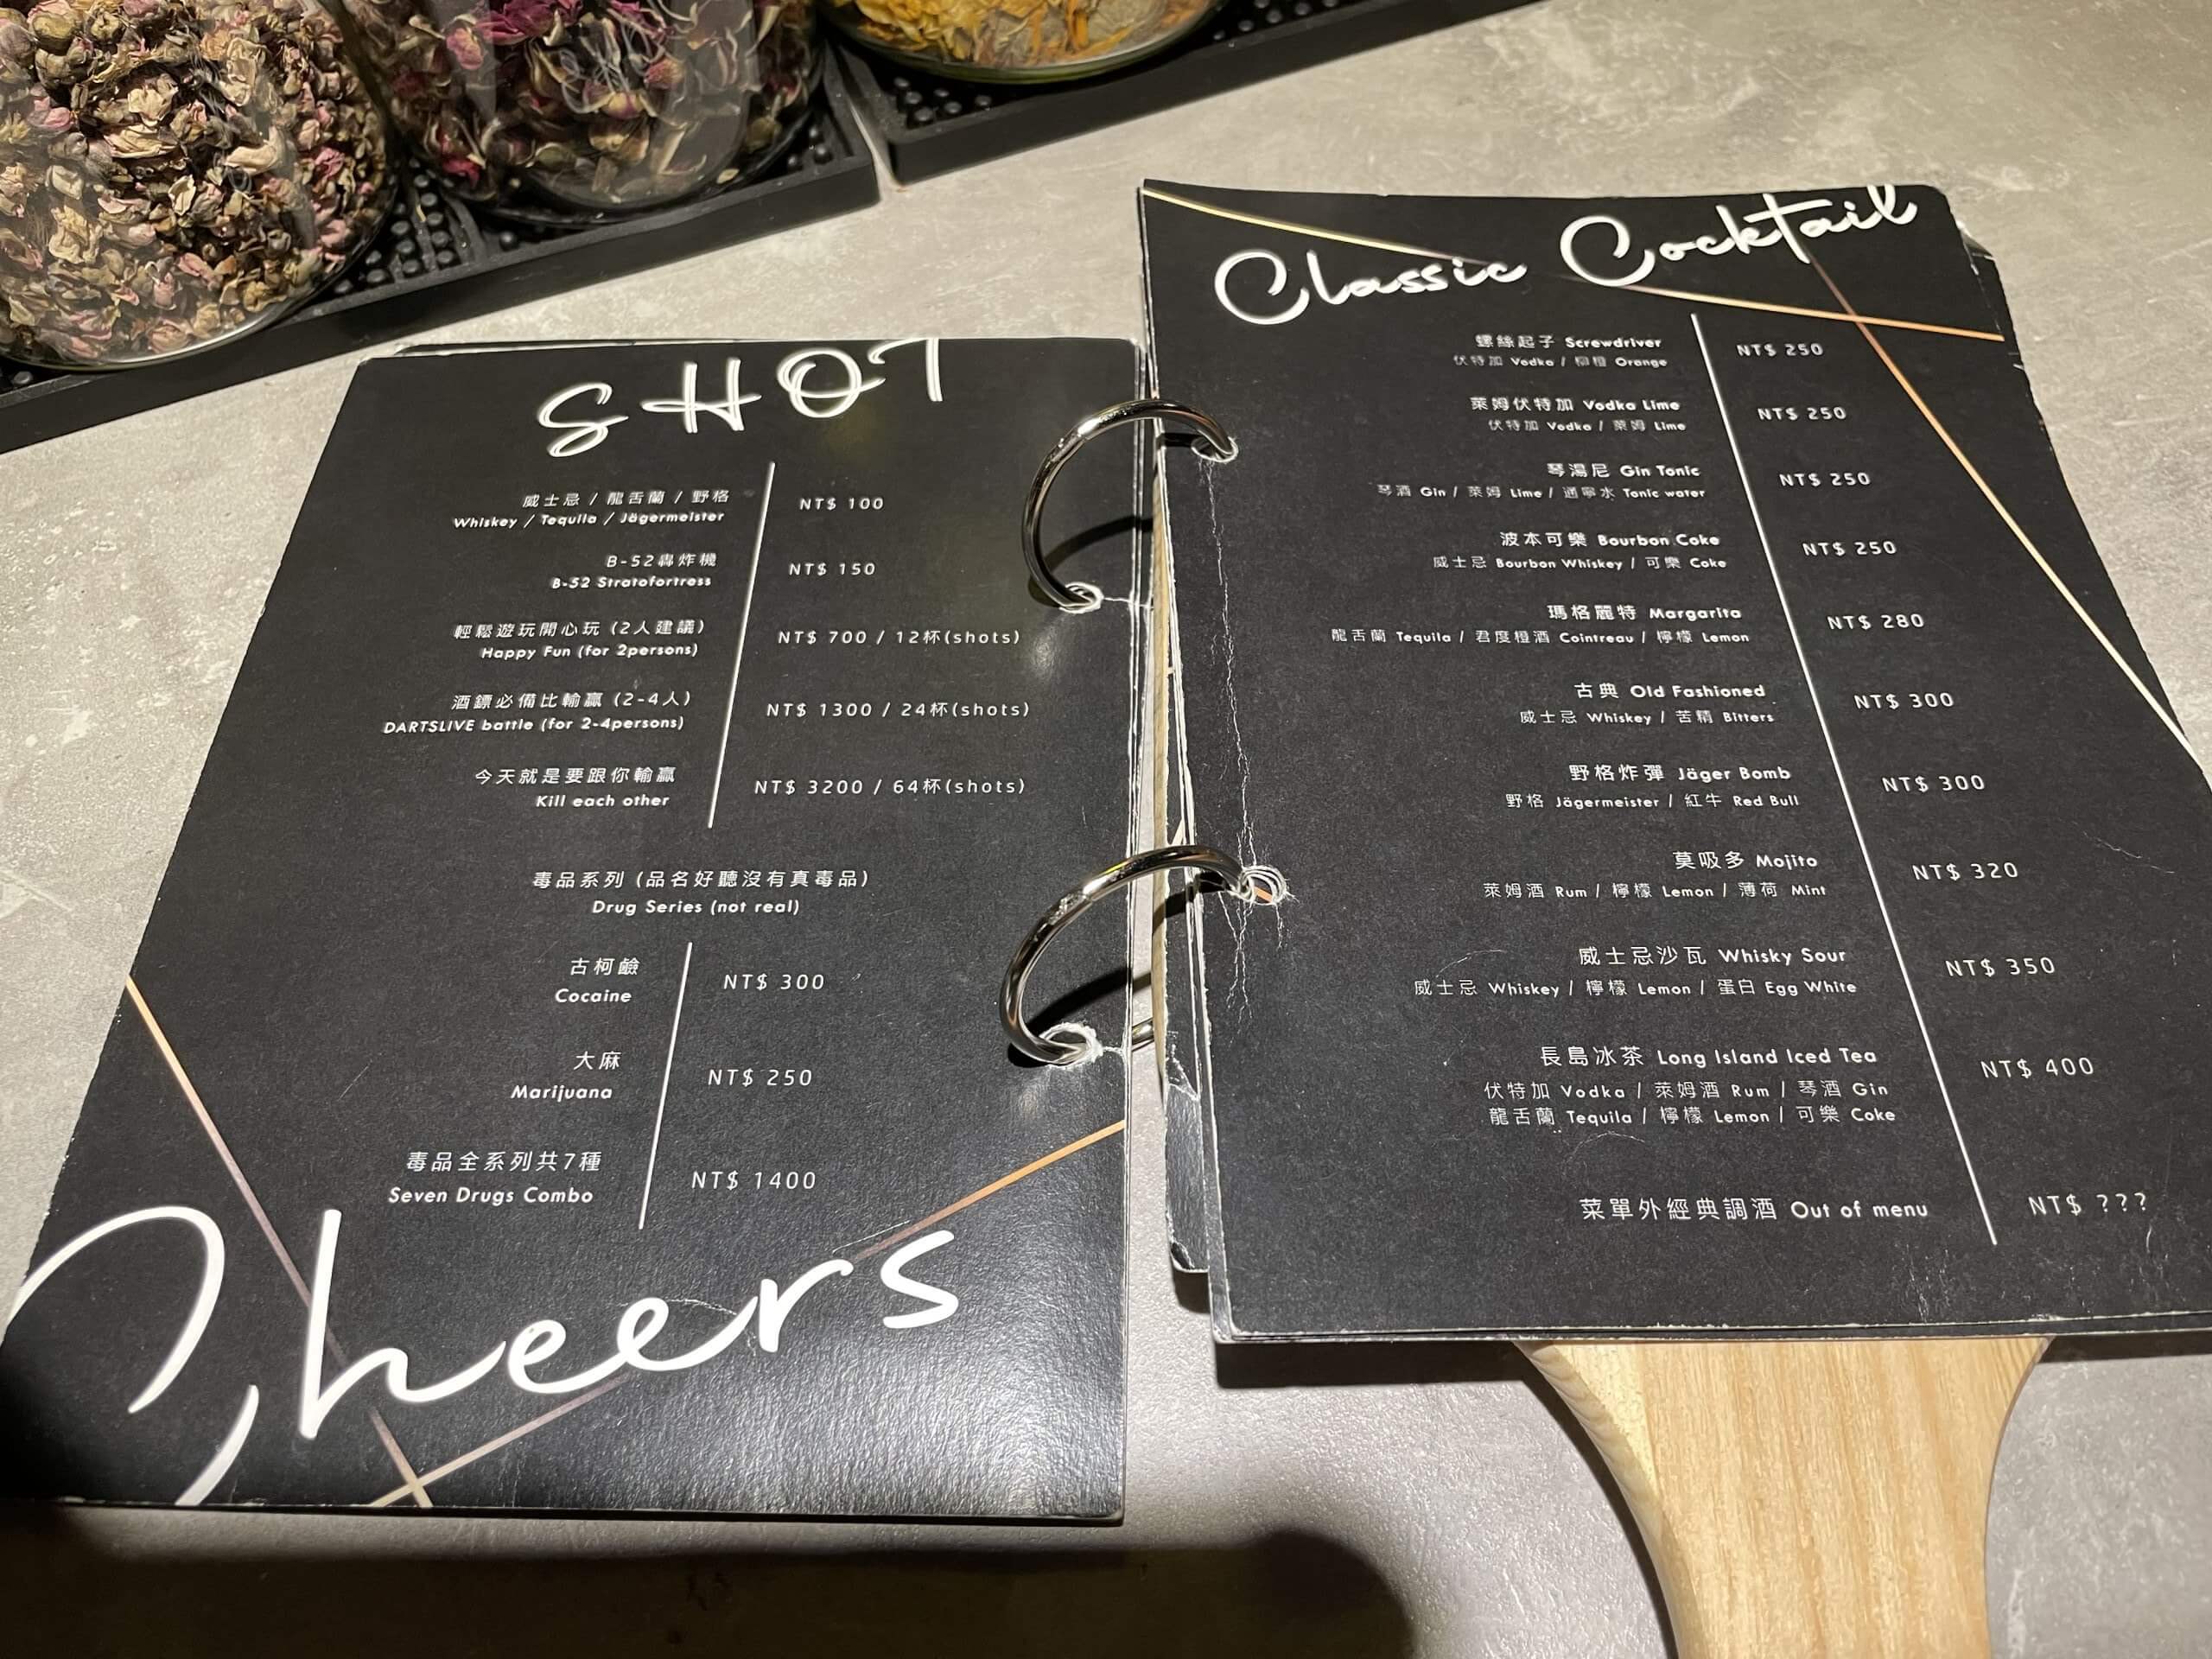 SHOT
威士忌 / 龍舌蘭 / 野格 NT$ 100
Whiskey / Tequila / Jägermeister
B-52轟炸機 NT$ 150
B-52 Stratofortress
輕鬆遊玩開心玩 (2人建議) NT$ 700 / 12杯(shots)
Happy Fun (for 2persons)
酒鏢必備比輸贏 (2-4人) NT$ 1300 / 24杯(shots)
DARTSLIVE battle (for 2-4persons)
今天就是要跟你輸贏 NT$ 3200 / 64杯(shots)
Kill each other
毒品系列 (品名好聽沒有真毒品)
Drug Series (not real)
古柯鹼 NT$ 300
Cocaine
大麻 NT$ 250
Marijuana
毒品全系列共7種 NT$ 1400
Seven Drugs Combo
Cheers
Classic Cocktail
螺絲起子 Screwdriver NT$ 250
伏特加 Vodka / 柳橙 Orange
萊姆伏特加 Vodka Lime NT$ 250
伏特加 Vodka / 萊姆 Lime
琴湯尼 Gin Tonic NT$ 250
琴酒 Gin / 萊姆 Lime / 通寧水 Tonic water
波本可樂 Bourbon Coke NT$ 250
威士忌 Bourbon Whiskey / 可樂 Coke
瑪格麗特 Margarita NT$ 280
龍舌蘭 Tequila / 君度橙酒 Cointreau / 檸檬 Lemon
古典 Old Fashioned NT$ 300
威士忌 Whiskey / 苦精 Bitters
野格炸彈 Jäger Bomb NT$ 300
野格 Jägermeister / 紅牛 Red Bull
莫吸多 Mojito NT$ 320
萊姆酒 Rum / 檸檬 Lemon / 薄荷 Mint
威士忌沙瓦 Whisky Sour NT$ 350
威士忌 Whiskey / 檸檬 Lemon / 蛋白 Egg White
長島冰茶 Long Island Iced Tea NT$ 400
伏特加 Vodka / 萊姆酒 Rum / 琴酒 Gin
龍舌蘭 Tequila / 檸檬 Lemon / 可樂 Coke
菜單外經典調酒 Out of menu NT$ ???